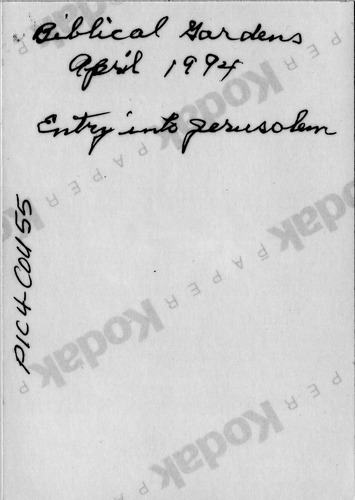 Biblical Gardens
April 1994
Entry into Jerusalem
PIC4-COU55
Kodak PAPER
Kodak PAPER
Kodak PAPER
Kodak PAPER